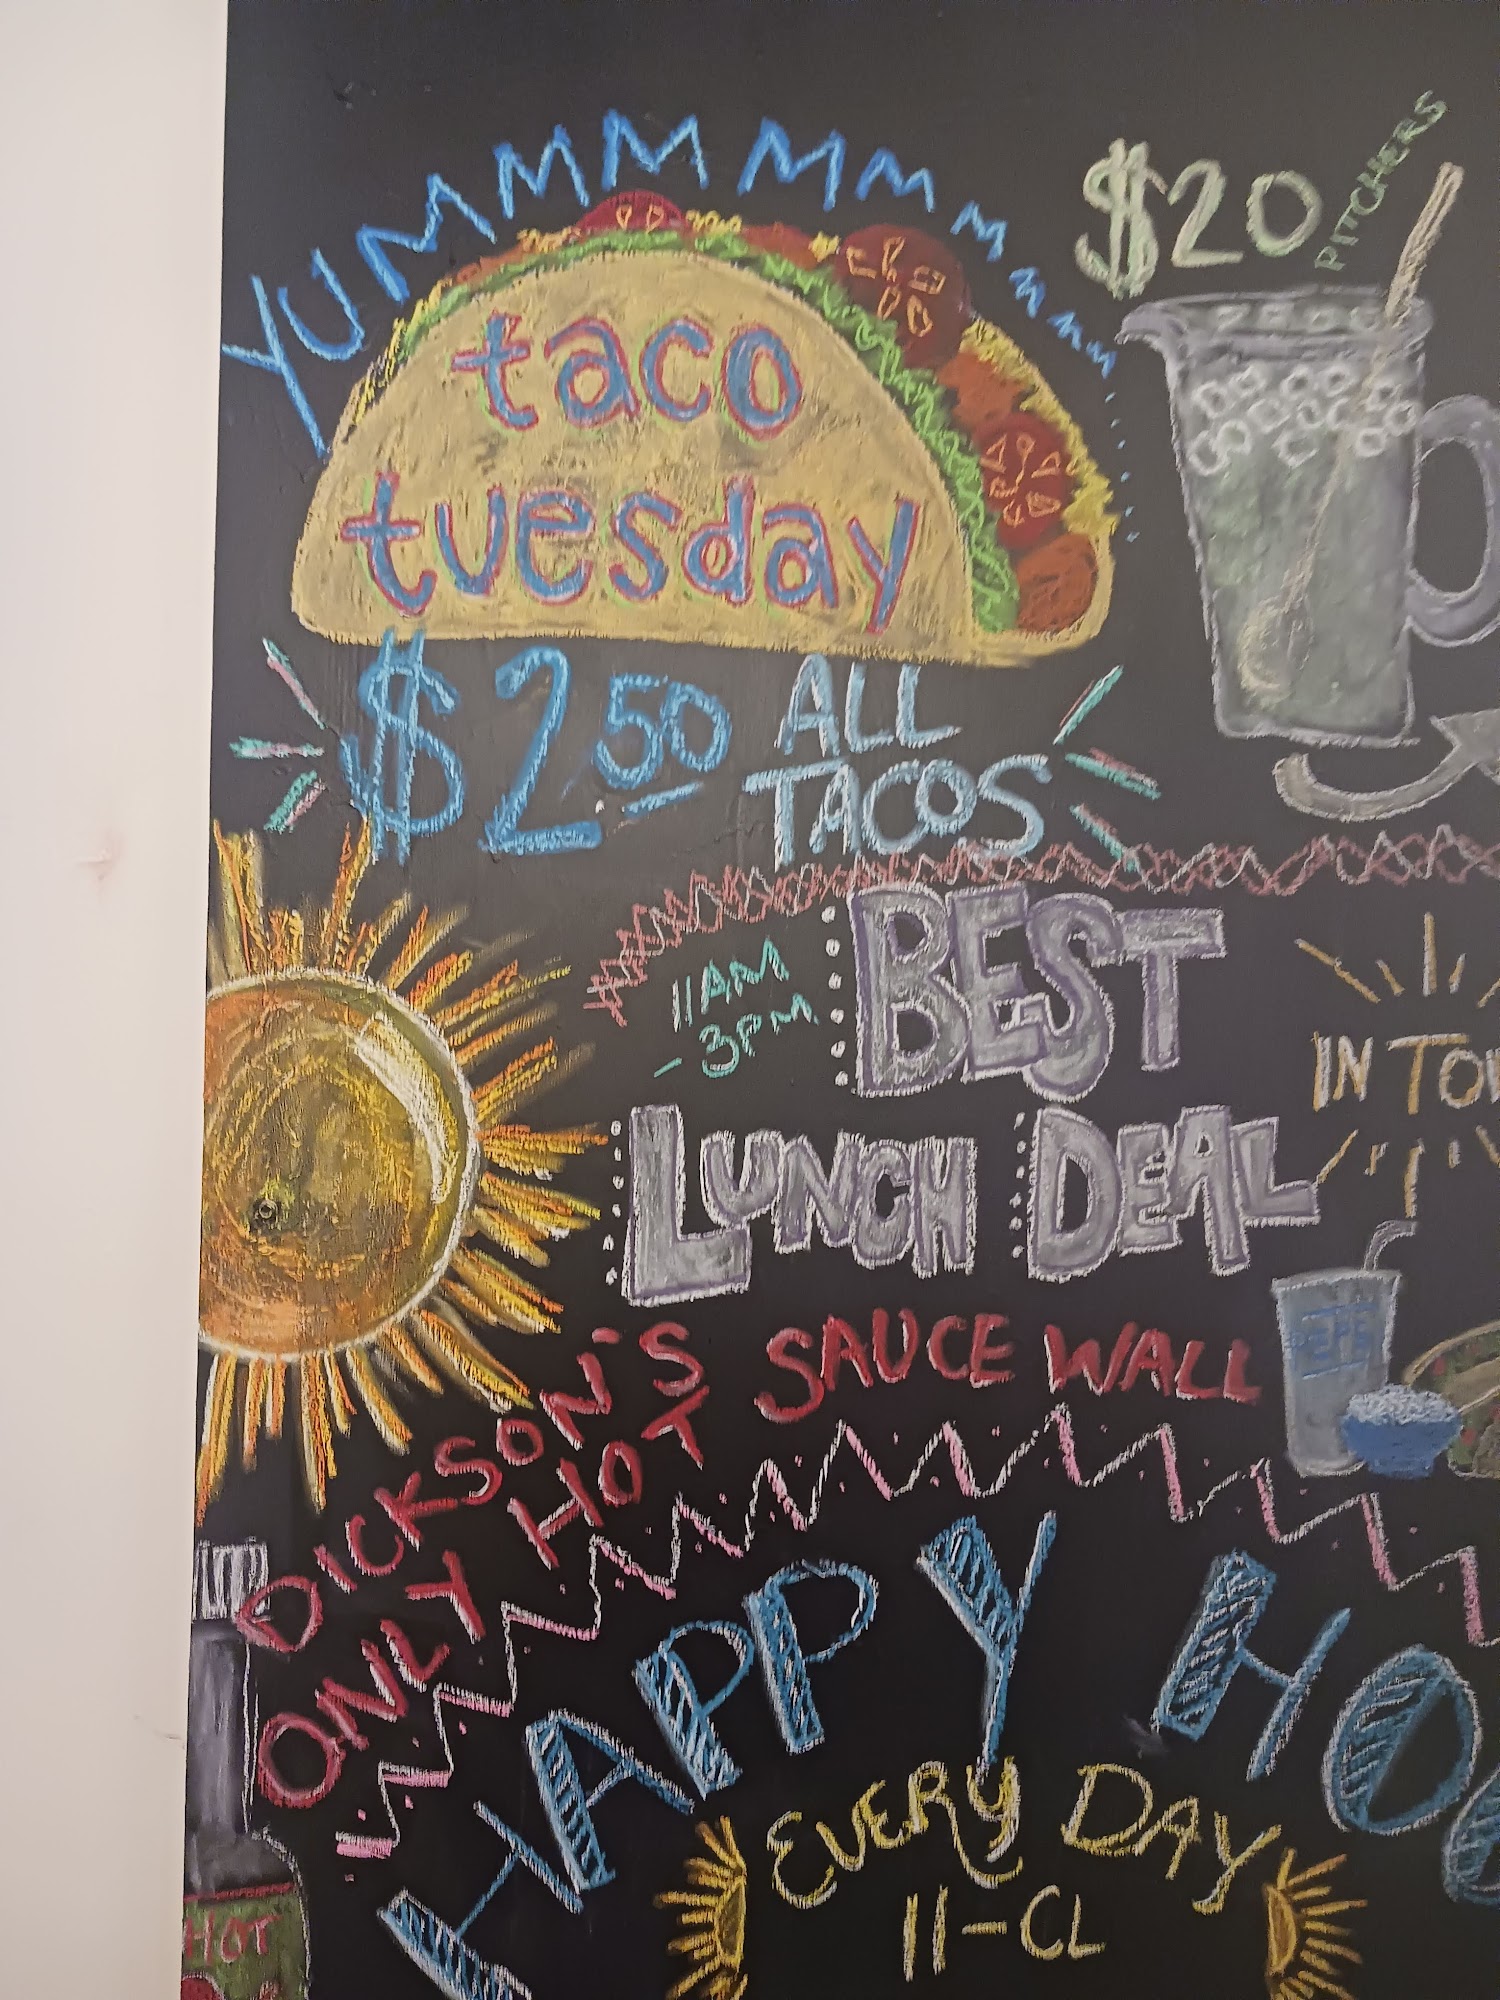 YUMMMMMMmmmm
$20
PITCHERS
taco
tuesday
$2.50
ALL
TACOS
11AM
- 3PM
BEST
IN TOW
LUNCH DEAL
DICKSON'S
ONLY HOT SAUCE WALL
PEPSI
HAPPY HO
EVERY DAY
11-CL
HOT